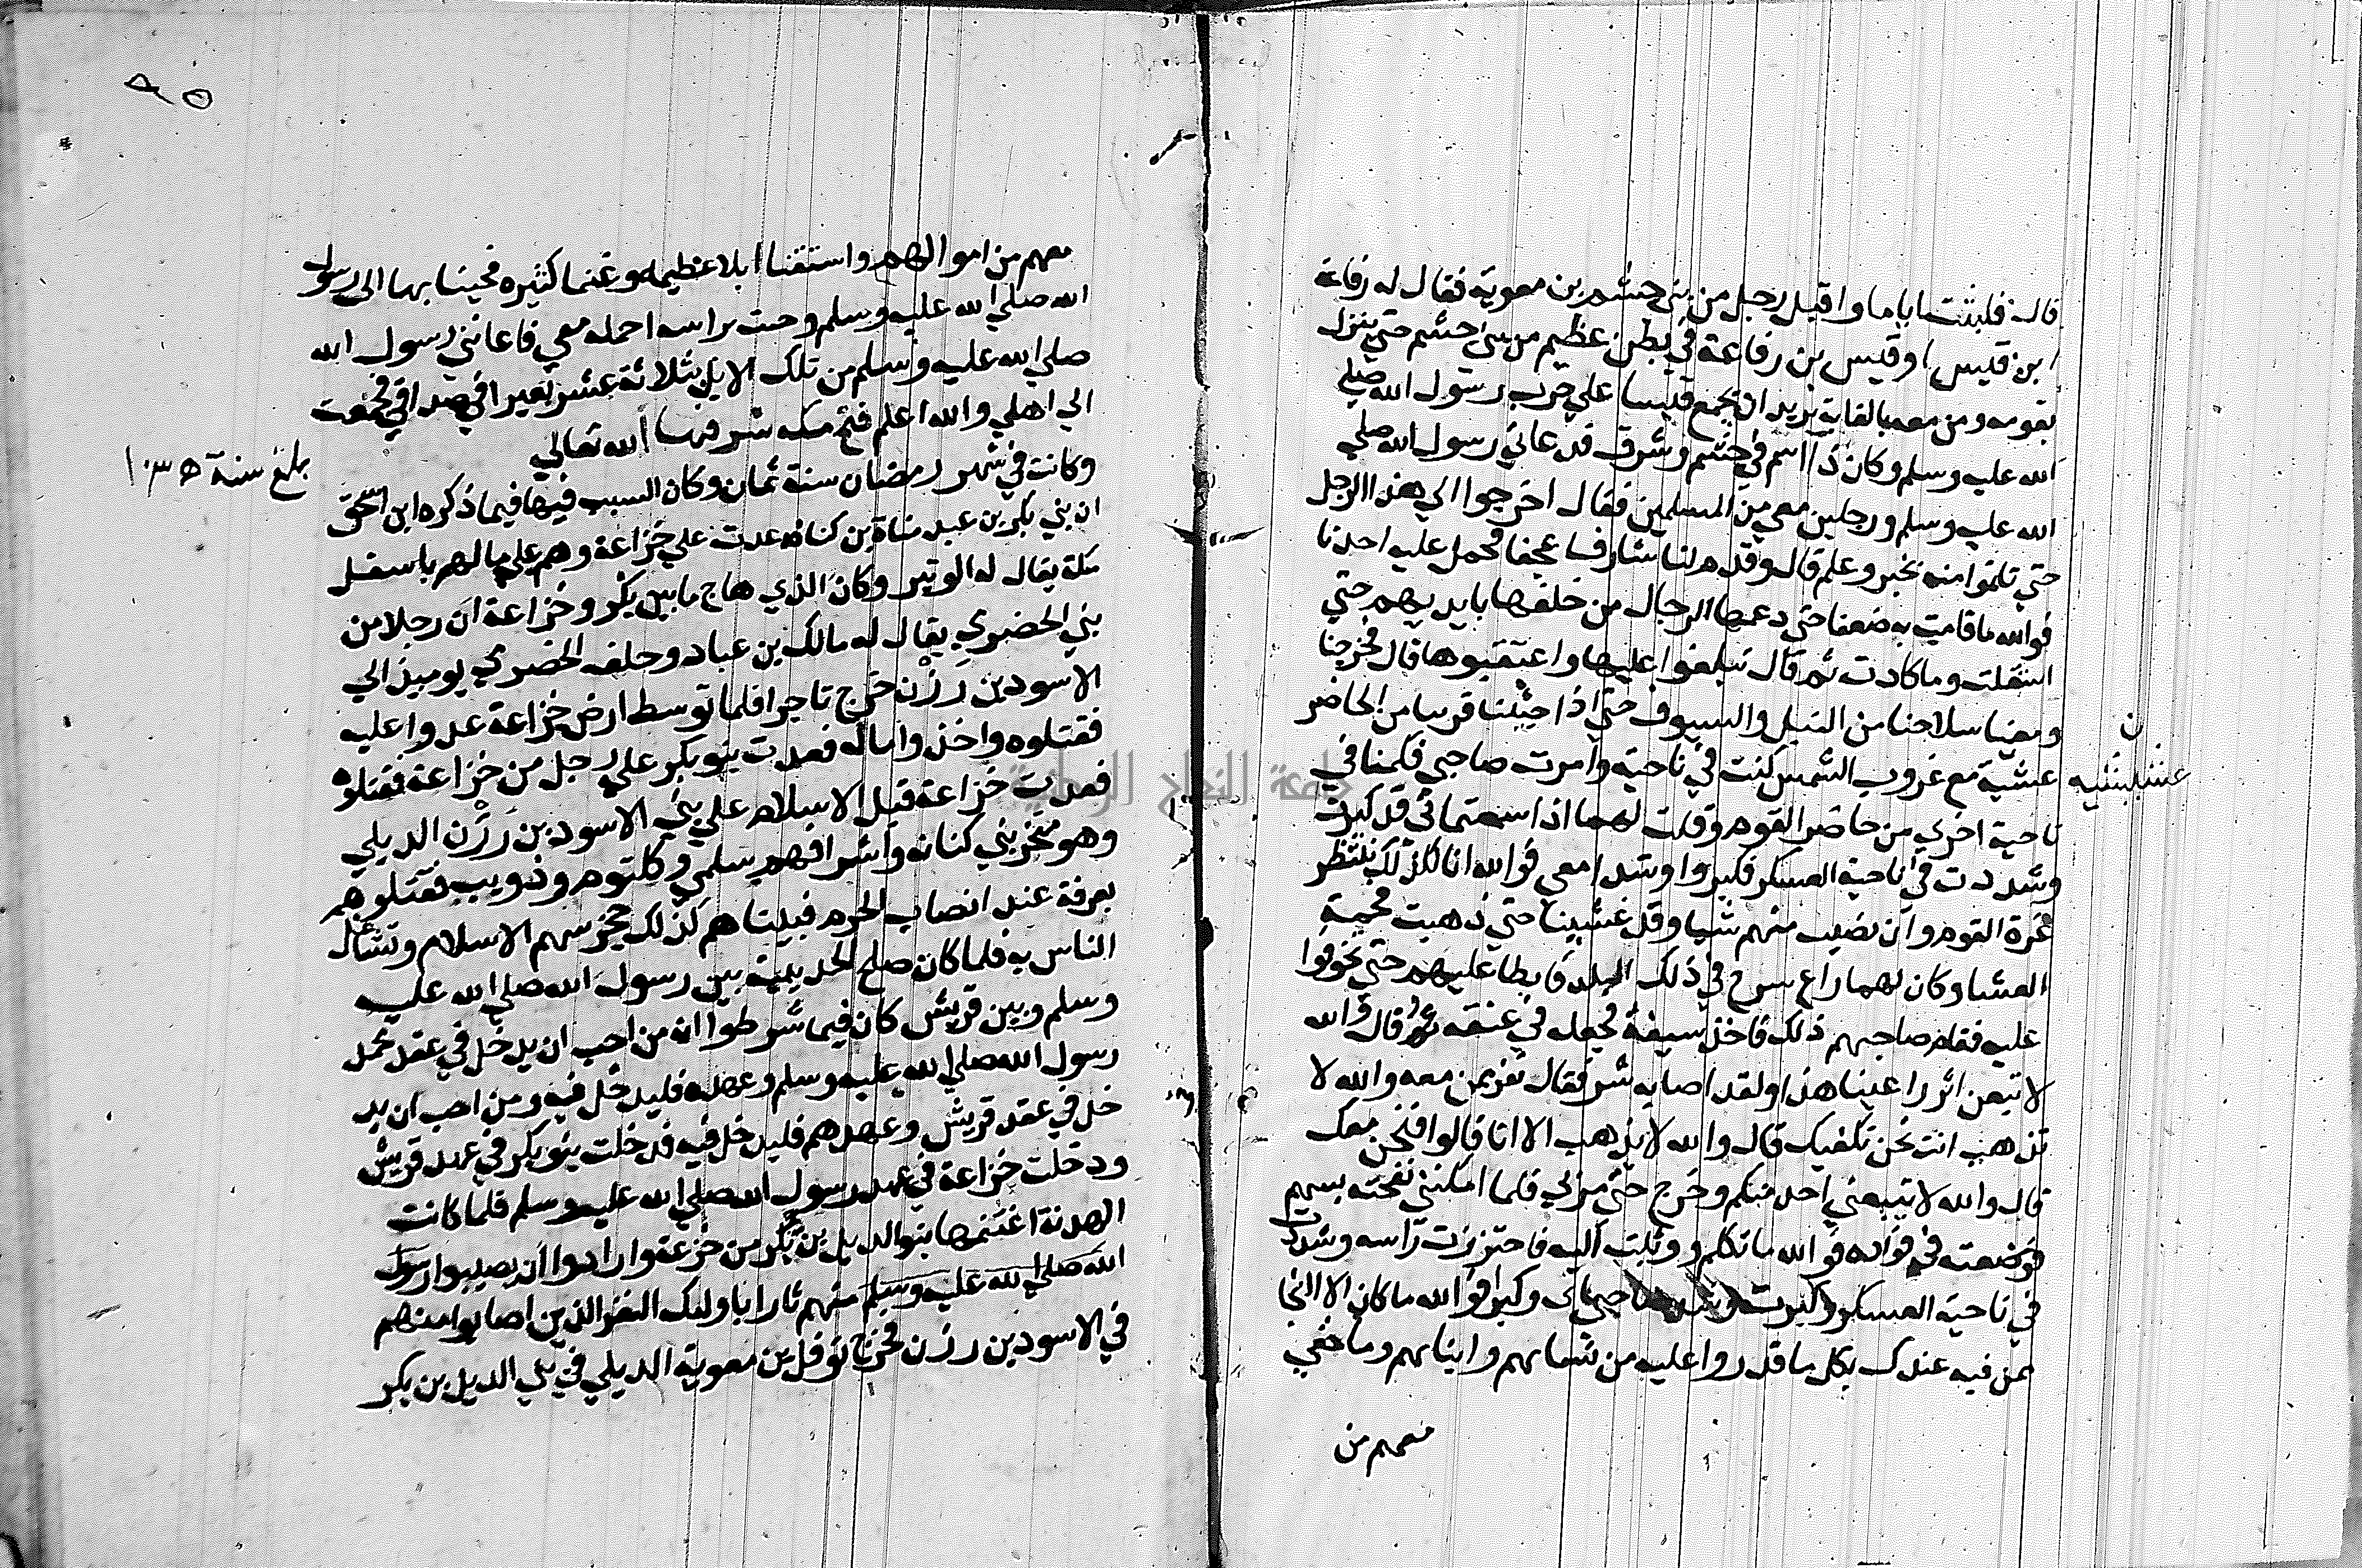 قال فلبثت اياما واقبل رجل من بني جشم بن معوية فقال له رفاعة
ابن قيس او قيس بن رفاعة في بطن عظيم من بني جشم حتي ينزل
بقومه ومن معه بالغابة يريد ان يجمع قيسا علي حرب رسول الله صلي
الله عليه وسلم وكان ذا اسم في جشم وشرف فدعاني رسول الله صلي
الله عليه وسلم ورجلين معي من المسلمين فقال اخرجوا الي هذا الرجل
حتي تاتوا منه بخبر وعلم قال وقدم لنا شارفا عجفا فحمل عليه احدنا
فوالله ما قامت به ضعفا حتي دعمها الرجال من خلفها بايديهم حتي
استقلت وما كادت ثم قال تبلغوا عليها واعتقبوها قال فخرجنا
ومعنا سلاحنا من النبل والسيوف حتي اذا جئنا قريبا من الحاضر
ن
عشيشية
عشية مع غروب الشمس كنت في ناحية وامرت صاحبي فكمنا في
ناحية اخري من حاضر القوم وقلت لهما اذا سمعتماني قد كبرت
وشددت في ناحية العسكر فكبروا وشدا معي فوالله انا لكذلك ننتظر
غرة القوم وان نصيب منهم شيا وقد غشينا حتي ذهبت فحمة
العشا وكان لهم راع سرح في ذلك البلد فابطا عليهم حتي تخوفوا
عليه فقام صاحبهم ذلك فاخذ سيفه فجعله في عنقه ثم قال والله
لاتبعن اثر راعينا هذا ولقد اصابه شر فقال نفر ممن معه والله لا
تذهب انت نحن نكفيك قال والله لا يذهب الا انا قالوا فنحن معك
قال والله لا يتبعني احد منكم وخرج حتي مر بي فلما امكنني نفحته بسهم
فوضعته في فواده فوالله ما تكلم ووثبت اليه فاحتززت راسه وشددت
في ناحية العسكر وكبرت وشد صاحباي وكبرا فوالله ما كان الا النجا
ممن فيه عندك بكل ما قدروا عليه من نسائهم وابنائهم وما خف
معهم من
٩٥
معهم من اموالهم واستقنا ابلا عظيمة وغنما كثيره فجينا بها الي رسول
الله صلي الله عليه وسلم وجيت براسه احمله معي فاعانني رسول الله
صلي الله عليه وسلم من تلك الابل بثلاثة عشر بعيرا في صداقي فجمعت
الي اهلي والله اعلم فتح مكه شرفها الله تعالي
وكانت في شهر رمضان سنة ثمان وكان السبب فيها فيما ذكره ابن اسحق
بلغ سنة ١٠٣٥
ان بني بكر بن عبد مناة بن كنانه عدت علي خزاعة وهم علي ما لهم باسفل
مكة يقال له الوتير وكان الذي هاج ما بين بكر وخزاعة ان رجلا من
بني الحضرمي يقال له مالك بن عباد وحلف الحضرمي يوميذ الي
الاسود بن رزن خرج تاجرا فلما توسط ارض خزاعة عدوا عليه
فقتلوه واخذوا ماله فعدت بنو بكر علي رجل من خزاعة فقتلوه
فعدت خزاعة قبل الاسلام علي بني الاسود بن رزن الديلي
وهو منخر بني كنانه واشرافهم سلمي وكلثوم وذويب فقتلوهم
بعرفة عند انصاب الحرم فبيناهم كذلك حجز بينهم الاسلام وتشاغل
الناس به فلما كان صلح الحديبية بين رسول الله صلي الله عليه
وسلم وبين قريش كان فيما شرطوا انه من احب ان يدخل في عقد محمد
رسول الله صلي الله عليه وسلم وعهده فليدخل فيه ومن احب ان يد
خل في عقد قريش وعهدهم فليدخل فيه فدخلت بنو بكر في عهد قريش
ودخلت خزاعة في عهد رسول الله صلي الله عليه وسلم فلما كانت
الهدنة اغتنمها بنو الديل بن بكر من خزعة وارادوا ان يصيبوا رسول
الله صلي الله عليه وسلم منهم ثارا باوليك النفر الذين اصابوا منهم
في الاسود بن رزن فخرج نوفل بن معوية الديلي في بني الديل بن بكر
جامعة النجاح الوطنية